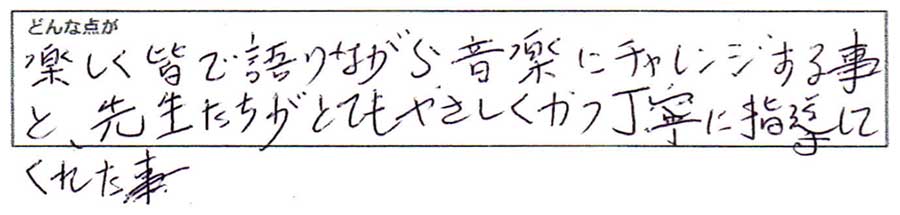 どんな点が
楽しく皆で語りながら音楽にチャレンジする事
と、先生たちがとてもやさしくかつ丁寧に指導して
くれた事